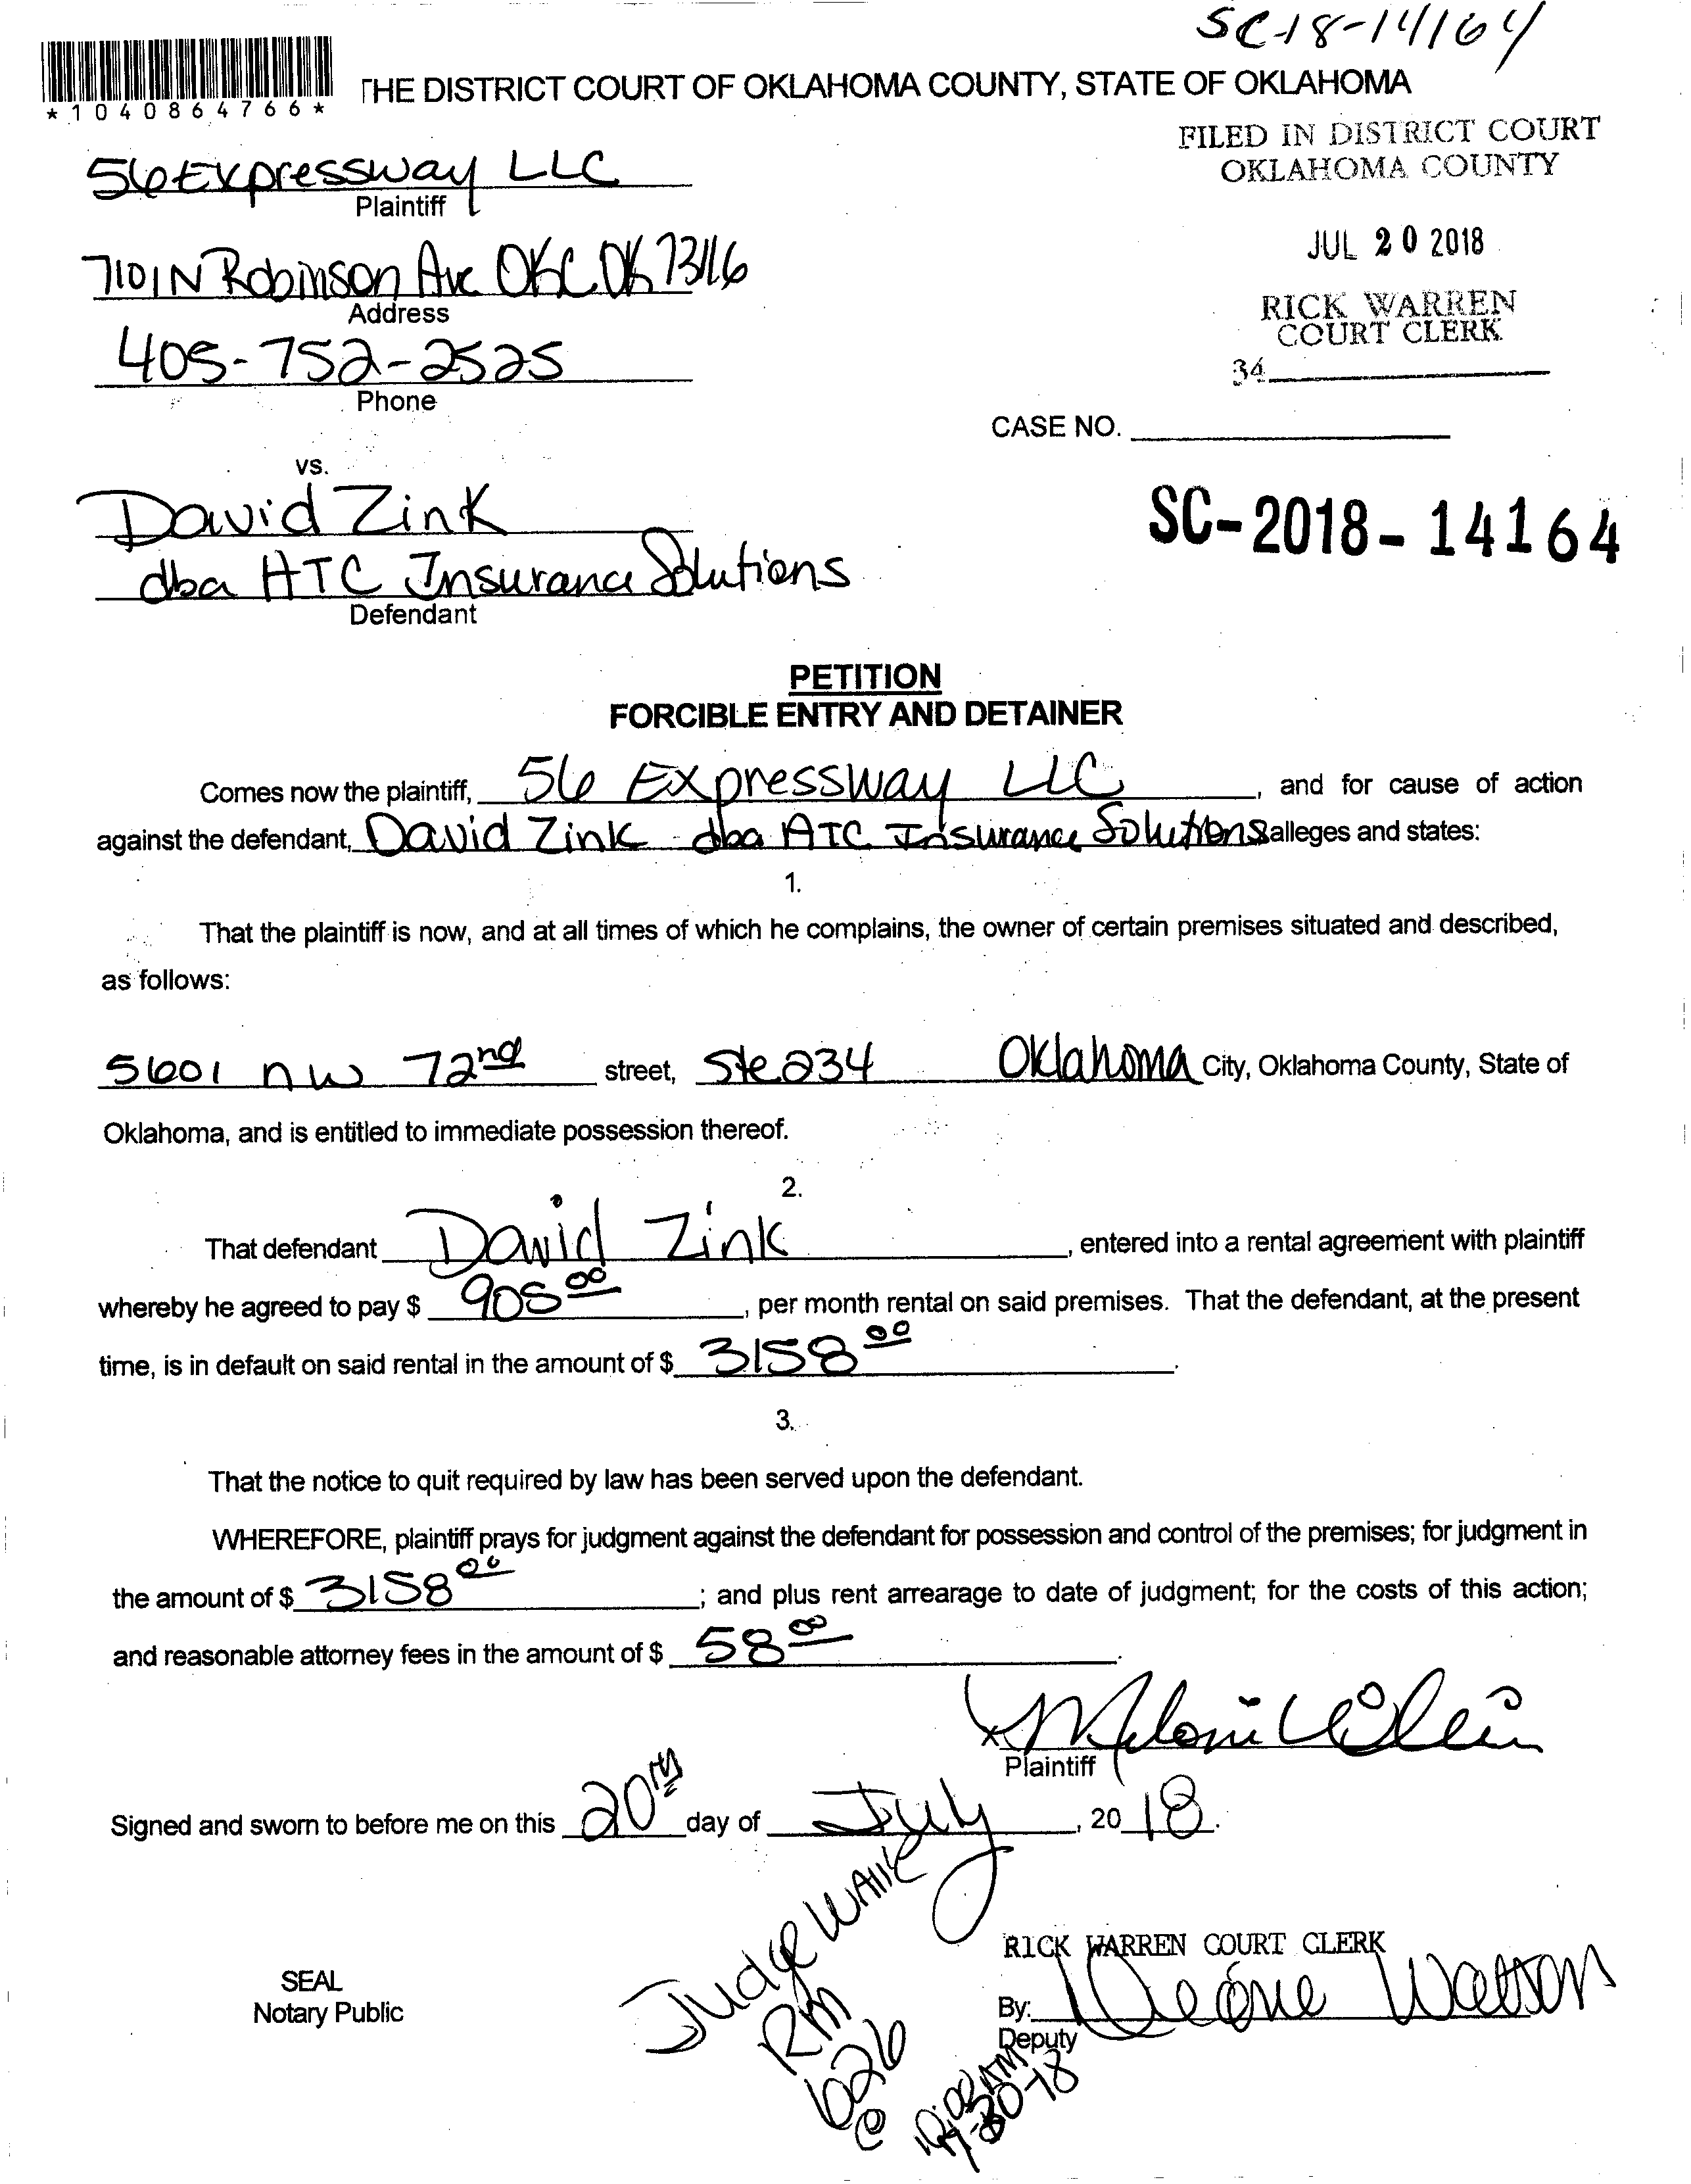 SC-18-14164
*1040864766*
THE DISTRICT COURT OF OKLAHOMA COUNTY, STATE OF OKLAHOMA
FILED IN DISTRICT COURT
OKLAHOMA COUNTY
JUL 20 2018
RICK WARREN
COURT CLERK
34
56 Expressway LLC
Plaintiff
7101 N Robinson Ave OKC OK 73116
Address
405-752-2525
Phone
CASE NO.
SC-2018-14164
vs.
David Zink
dba HTC Insurance Solutions
Defendant
PETITION
FORCIBLE ENTRY AND DETAINER
Comes now the plaintiff, 56 Expressway LLC, and for cause of action
against the defendant, David Zink dba ATC Insurance Solutions alleges and states:
1.
That the plaintiff is now, and at all times of which he complains, the owner of certain premises situated and described,
as follows:
5601 NW 72nd street, Ste 234 Oklahoma City, Oklahoma County, State of
Oklahoma, and is entitled to immediate possession thereof.
2.
That defendant David Zink, entered into a rental agreement with plaintiff
whereby he agreed to pay $ 905 00, per month rental on said premises. That the defendant, at the present
time, is in default on said rental in the amount of $ 3158 00.
3.
That the notice to quit required by law has been served upon the defendant.
WHEREFORE, plaintiff prays for judgment against the defendant for possession and control of the premises; for judgment in
the amount of $ 3158 00; and plus rent arrearage to date of judgment; for the costs of this action;
and reasonable attorney fees in the amount of $ 58 00.
x
Plaintiff
Signed and sworn to before me on this 20th day of July, 2018.
Judge Walke
Rm
626
@
SEAL
Notary Public
RICK WARREN COURT CLERK
By: Watson
Deputy